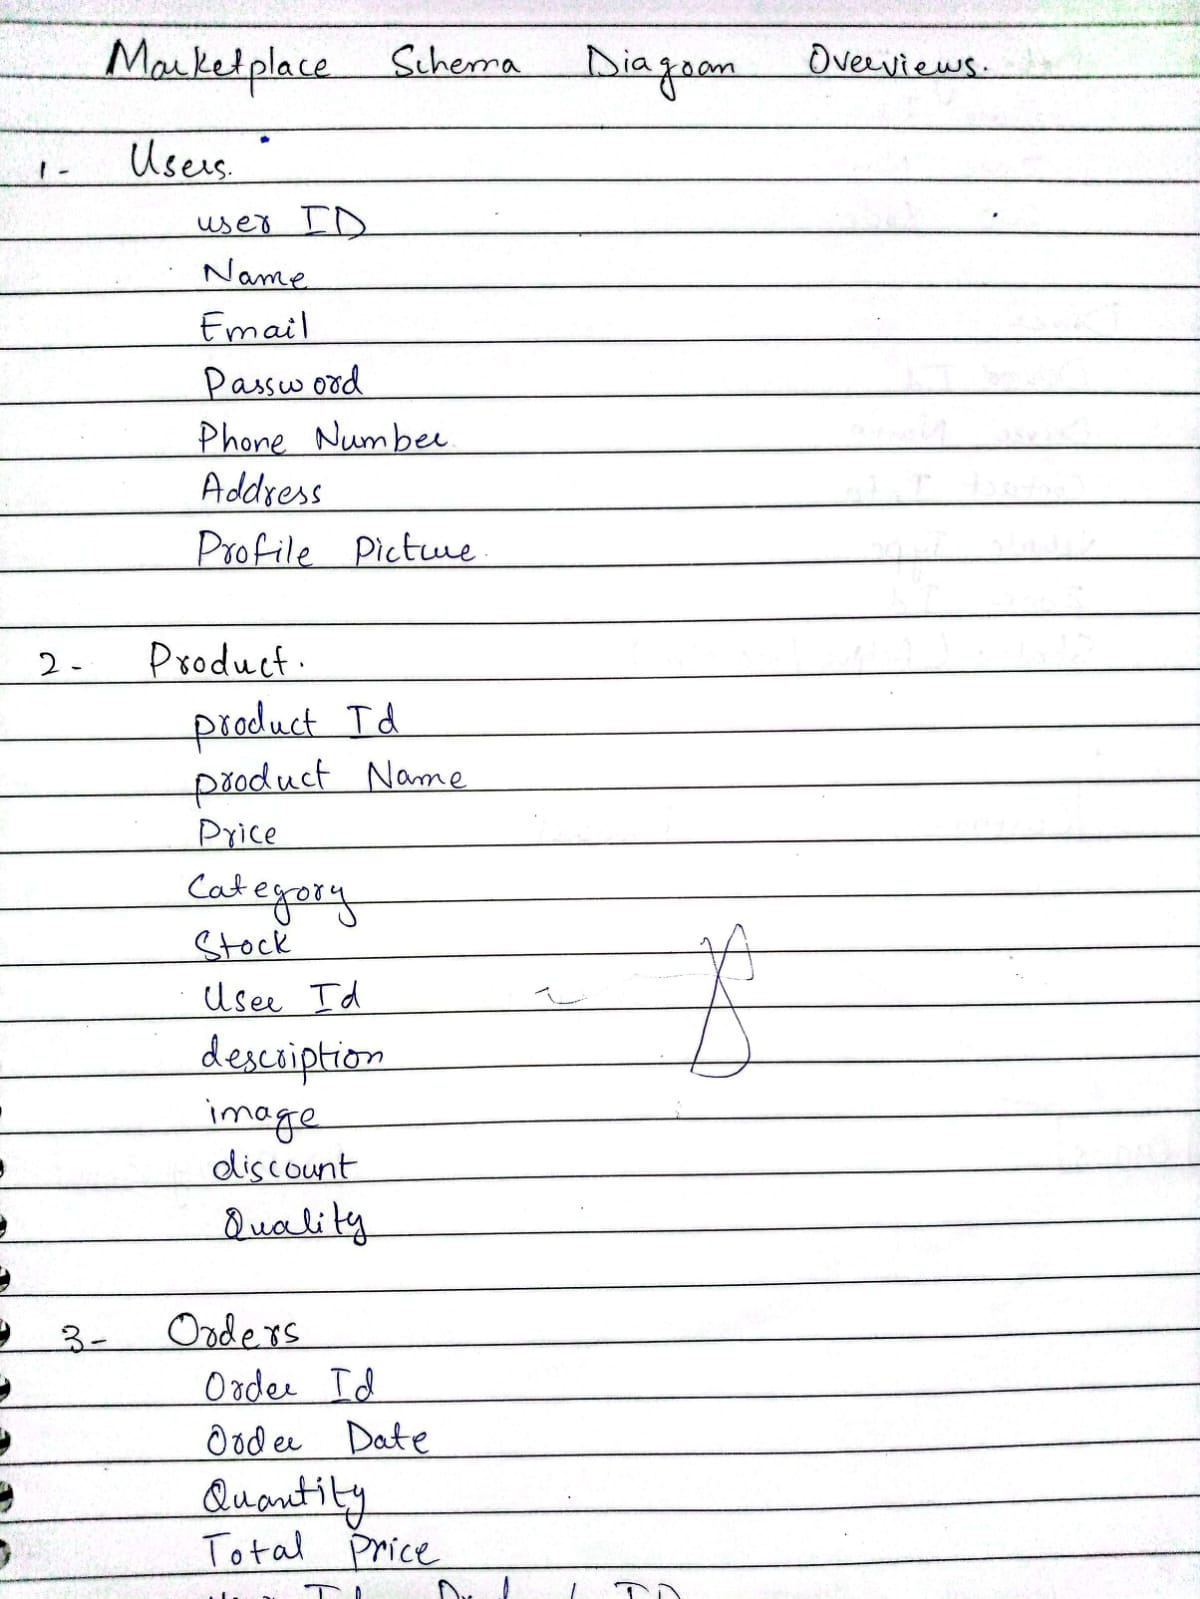 Marketplace Schema Diagram Overviews.
1- Users.
user ID
Name
Email
Password
Phone Number
Address
Profile Picture
2- Product.
product Id
product Name
Price
Category
Stock
User Id
description
image
discount
Quality
3- Orders
Order Id
Order Date
Quantity
Total Price